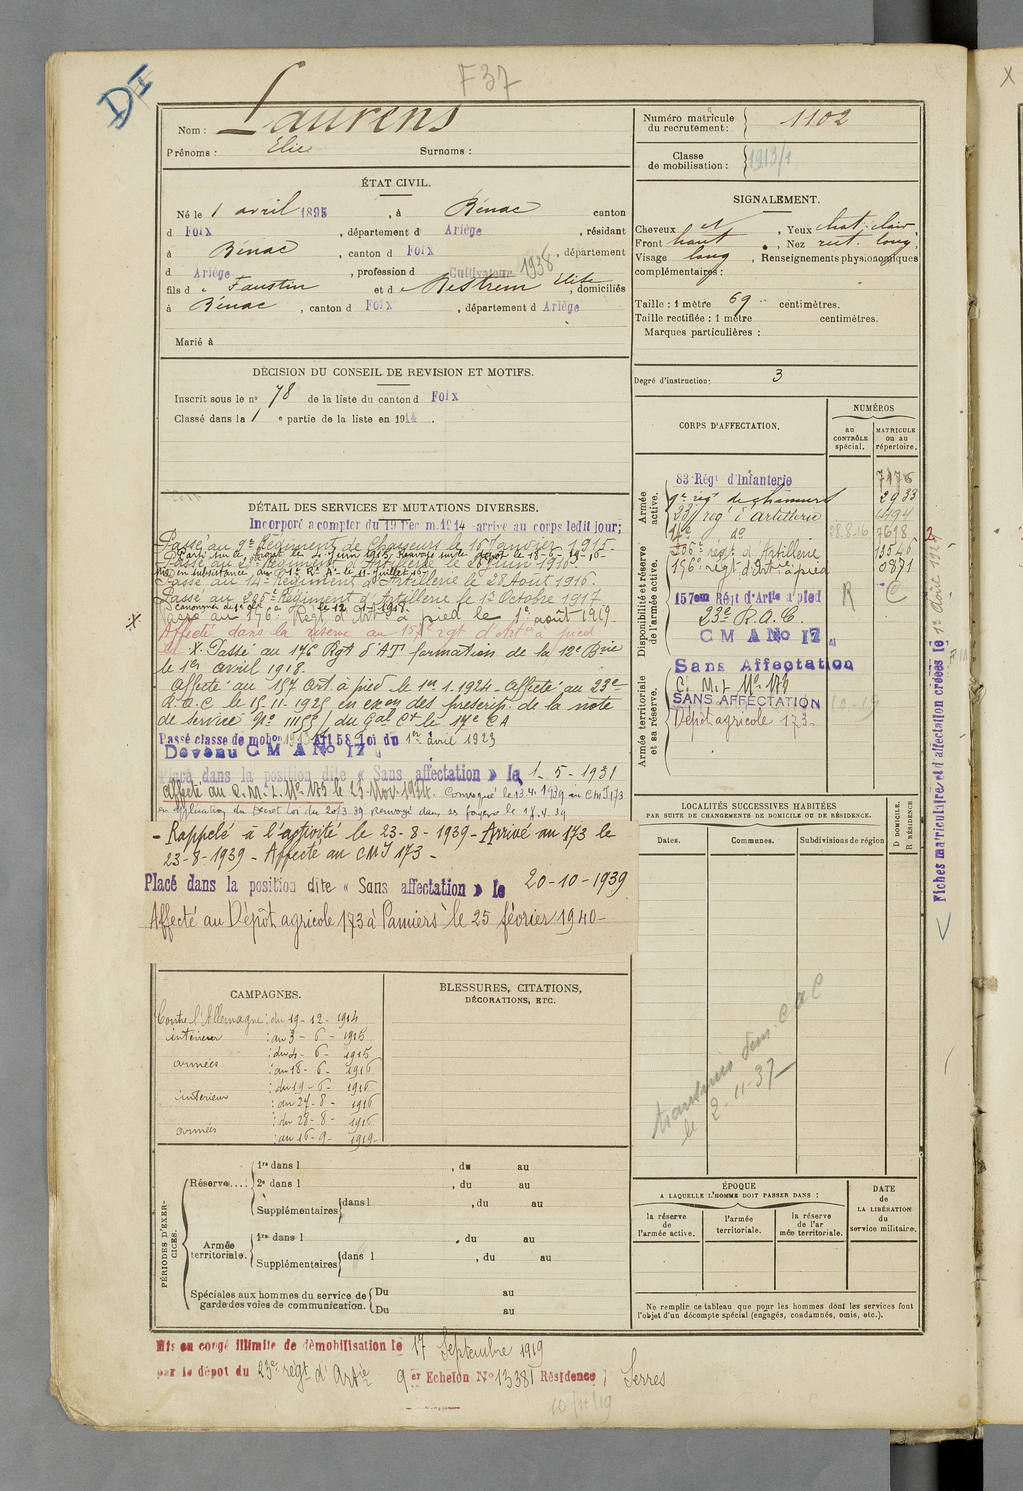 DI
F37
Nom : Laurens
Prénoms : Elie Surnoms :
Numéro matricule du recrutement : 1102
Classe de mobilisation : 1913/1
ÉTAT CIVIL.
Né le 1 avril 1895, à Bénac canton
d Foix, département d Ariège, résidant
à Bénac, canton d Foix, département
d Ariège, profession d Cultivateur 1938
fils d Faustin et d Mestrem Elise, domiciliés
à Bénac, canton d Foix, département d Ariège
Marié à
SIGNALEMENT.
Cheveux et, Yeux chat. clair
Front haut, Nez rect. long,
Visage long, Renseignements physionomiques
complémentaires :
Taille : 1 mètre 69 centimètres.
Taille rectifiée : 1 mètre centimètres.
Marques particulières :
DÉCISION DU CONSEIL DE REVISION ET MOTIFS.
Inscrit sous le n° 78 de la liste du canton d Foix
Classé dans la 1e partie de la liste en 1914.
Degré d'instruction : 3
CORPS D'AFFECTATION.
NUMÉROS
au CONTRÔLE spécial.
MATRICULE ou au répertoire.
Armée active.
83 Régt d'Infanterie 7176
9e régt de chasseurs 2933
23e rég' d'artillerie 4494
14e do 28.8.16 7618
Disponibilité et réserve de l'armée active.
régt d'Artillerie 13546
176e régt d'Artie à pied 0871
157em Régt d'Artie à pied R C
23e R.A.C.
CMA No 17
Armée territoriale et sa réserve.
Sans Affectation
C.M.I. No 173
SANS AFFECTATION
Dépôt agricole 173
DÉTAIL DES SERVICES ET MUTATIONS DIVERSES.
Incorporé a compter du 19 Decem. 1914 arrivé au corps ledit jour;
Passé au 9e Régiment de Chasseurs le 15 Janvier 1915.
Passé au 23e Régiment d'Artillerie le 26 Juin 1916.
Passé au 14e Régiment d'Artillerie le 28 Août 1916.
Passé au 285e Régiment d'Artillerie le 1er Octobre 1917
Passé au 176e Régt d'Artie à pied le 1er août 1919.
Affecté dans la réserve au 157e rgt d'Artie à pied
X Passé au 176 Rgt d'AT formation de la 12e Brie
le 1er avril 1918.
Affecté au 157 Art. à pied le 1er.1.1924 - Affecté au 23e
R.A.C le 15.11.1925 en exon des prescrip. de la note
de service No 11155/ du Gal Ct le 17e CA
Passé classe de mobon 1913 Art 58 Loi du 1er avril 1923
Devenu CMA No 17
Placé dans la position dite « Sans affectation » le 1-5-1931
Convoqué le 13.4.1939 au CMI 173
en application du Décret loi du 20/3.39 Renvoyé dans ses foyers le 18.4.39
- Rappelé à l'activité le 23-8-1939 - Arrivé au 173 le
23-8-1939 - Affecté au CMI 173 -
Placé dans la position dite « Sans affectation » le 20-10-1939
Affecté au Dépôt agricole 173 à Pamiers le 25 février 1940 -
LOCALITÉS SUCCESSIVES HABITÉES
PAR SUITE DE CHANGEMENTS DE DOMICILE OU DE RÉSIDENCE.
Dates. Communes. Subdivisions de région
D DOMICILE. R RÉSIDENCE.
le 2-11-37
Fiches matriculaire et d'affectation créées le 1er Août 1927
CAMPAGNES.
Contre l'Allemagne : du 19-12-1914
intérieur : au 3-6-1915
: du 4-6-1915
armées : au 18-6-1916
: du 19-6-1916
intérieur : au 27-8-1916
: du 28-8-1916
armées : au 16-9-1919
BLESSURES, CITATIONS,
DÉCORATIONS, ETC.
PÉRIODES D'EXERCICES.
Réserve...: 1re dans l , du au
2e dans l , du au
Supplémentaires dans l , du au
Armée territoriale. 1re dans l , du au
Supplémentaires dans l , du au
Spéciales aux hommes du service de Du au
garde des voies de communication. Du au
ÉPOQUE
A LAQUELLE L'HOMME DOIT PASSER DANS :
la réserve de l'armée active.
l'armée territoriale.
la réserve de l'armée territoriale.
DATE de LA LIBÉRATION du service militaire.
Ne remplir ce tableau que pour les hommes dont les services font
l'objet d'un décompte spécial (engagés, condamnés, omis, etc.).
Mis en congé illimité de démobilisation le 17 Septembre 1919
par le dépot du 23e régt d'Artie 9er Echelon No 13381 Résidence Serres
10/11/19